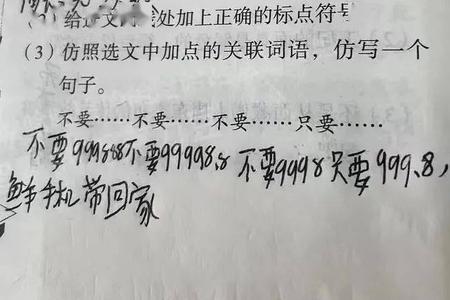 给文处加上正确的标点符号
(3) 仿照选文中加点的关联词语，仿写一个
句子。
不要……不要……不要……只要……
不要99988.8不要99998.8 不要9998只要999.8，
鲜手机带回家